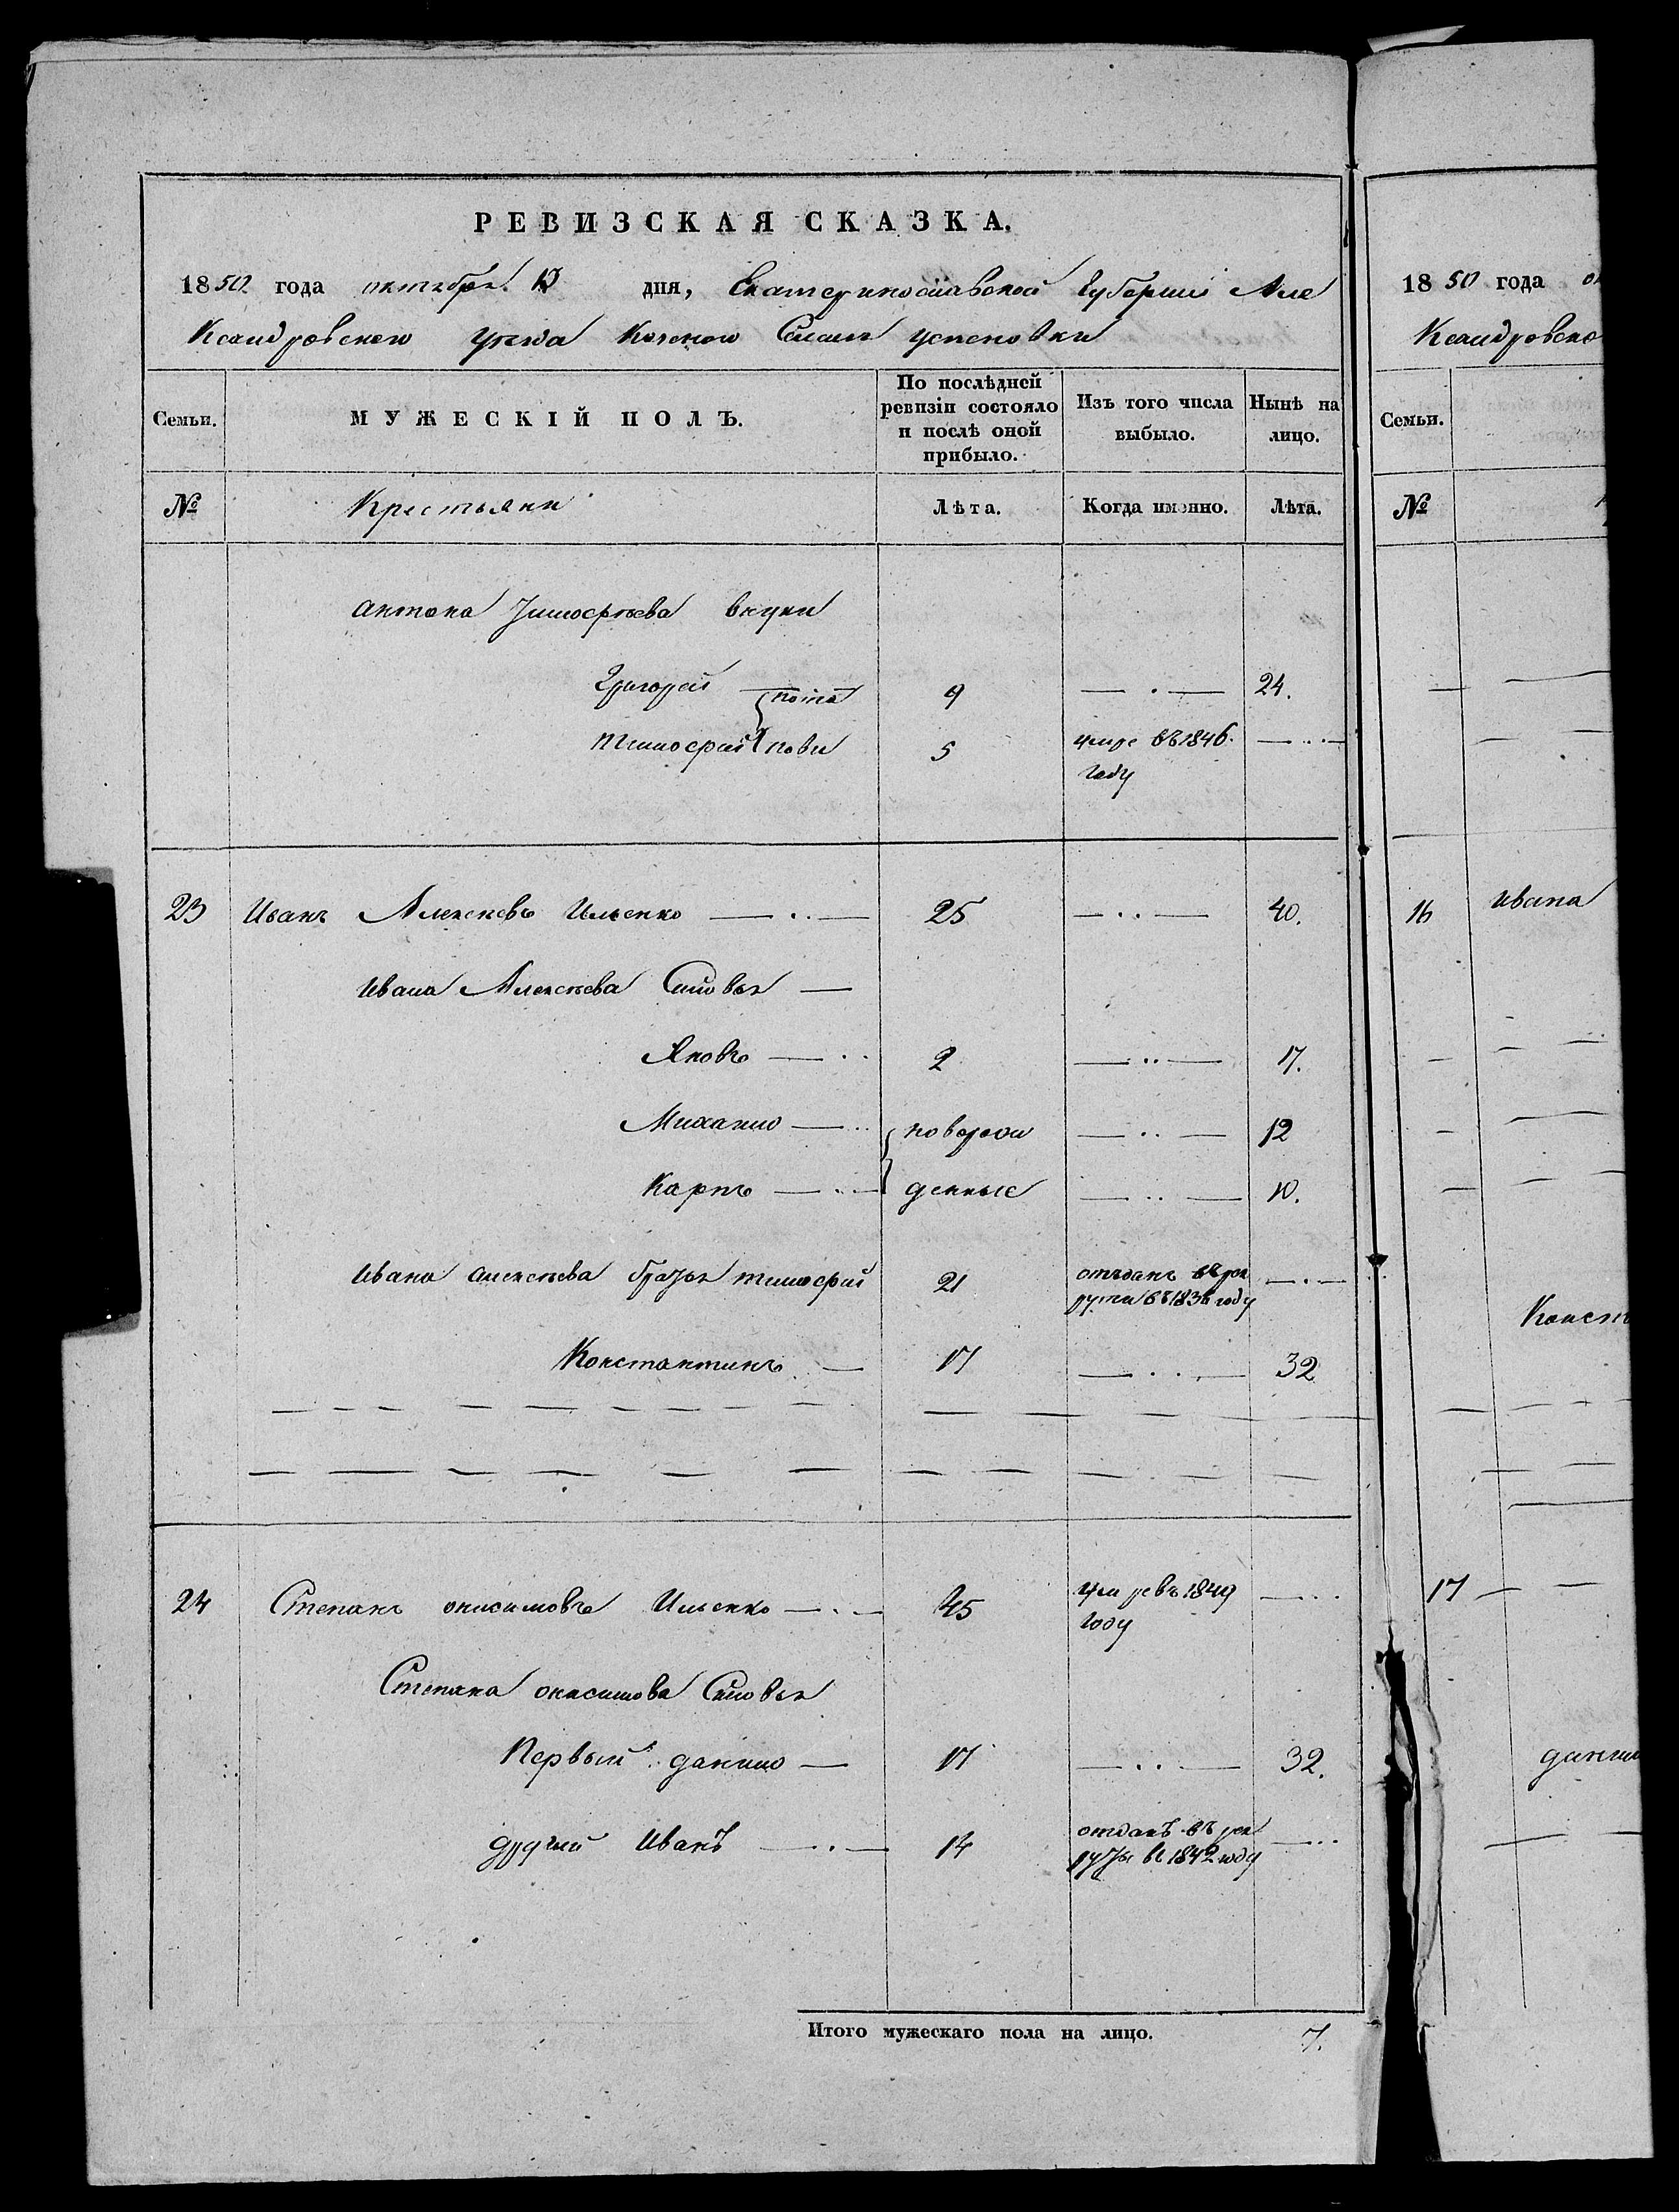 РЕВИЗСКАЯ СКАЗКА.
1850 года октября дня, Екатеринославской Губернии Але
ксандровского уезда Успеновки
Семьи. МУЖЕСКІЙ ПОЛЪ. По послѣдней ревизіи состояло и послѣ оной прибыло. Изъ того числа выбыло. Нынѣ на лицо.
№ Крестьяни Лѣта. Когда именно. Лѣта.
Антона Тимофѣева внуки
Григорей 9 — . — 24.
Тимофей 5 умре въ 1846. — .. —
году
23 Иванъ Алексѣевъ Ильенко — .. — 25 — .. — 40.
Ивана Алексѣева Сыновья —
Яковъ — .. 2 — .. — 17.
Михайло — .. новорож — .. — 12
Карпъ — .. — денные — .. — 10.
Ивана Алексѣева братья тимофей 21 отъданъ въ рек — . —
руты въ 1836 году
Константинъ — 17 — .. — 32
24 Степанъ онисимовъ Ильенко — . — 45 умре въ 1849 — ..
году
Степана онисимова Сыновья
Первый данило — 17 — .. — 32.
другий Иванъ — . — 14 отданъ въ рек — ..
руты въ 1842 году
Итого мужескаго пола на лицо. 7.
1850 года
ксандровско
Семьи.
№
16 Ивана
Конст
17
данил